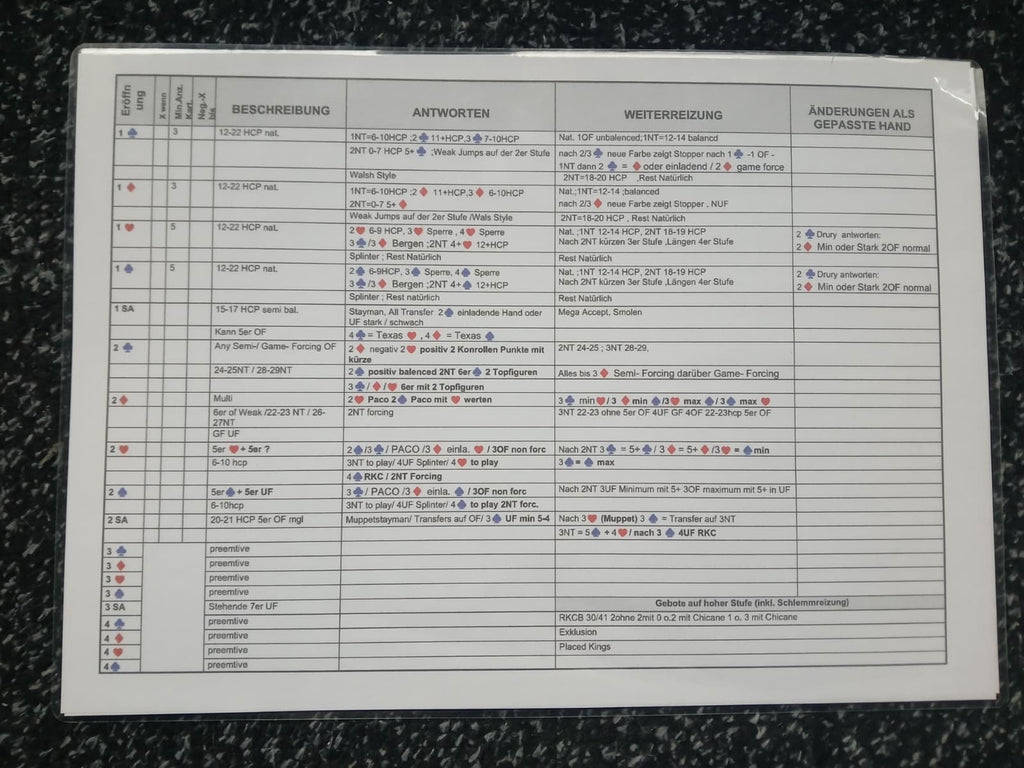 Eröffn ung X wenn Min.Anz. Kart. Neg.-X bis BESCHREIBUNG ANTWORTEN WEITERREIZUNG ÄNDERUNGEN ALS GEPASSTE HAND
1 ♣ 3 12-22 HCP nat. 1NT=6-10HCP ;2 ♣ 11+HCP,3 ♣ 7-10HCP Nat. 1OF unbalenced;1NT=12-14 balancd
2NT 0-7 HCP 5+ ♣ ;Weak Jumps auf der 2er Stufe nach 2/3 ♣ neue Farbe zeigt Stopper nach 1 ♣ -1 OF -
1NT dann 2 ♣ = ♦ oder einladend / 2 ♦ game force
Walsh Style 2NT=18-20 HCP ,Rest Natürlich
1 ♦ 3 12-22 HCP nat. 1NT=6-10HCP ;2 ♦ 11+HCP,3 ♦ 6-10HCP Nat.;1NT=12-14 ;balanced
2NT=0-7 5+ ♦ nach 2/3 ♦ neue Farbe zeigt Stopper , NUF
Weak Jumps auf der 2er Stufe /Wals Style 2NT=18-20 HCP , Rest Natürlich
1 ♥ 5 12-22 HCP nat. 2♥ 6-9 HCP, 3♥ Sperre , 4♥ Sperre Nat. ;1NT 12-14 HCP, 2NT 18-19 HCP 2 ♣Drury antworten:
3 ♣/3 ♦ Bergen ;2NT 4+♥ 12+HCP Nach 2NT kürzen 3er Stufe ,Längen 4er Stufe 2 ♦ Min oder Stark 2OF normal
Splinter ; Rest Natürlich Rest Natürlich
1 ♠ 5 12-22 HCP nat. 2♠ 6-9HCP, 3♠ Sperre, 4♠ Sperre Nat. ;1NT 12-14 HCP, 2NT 18-19 HCP 2 ♣Drury antworten:
3 ♣/3 ♦ Bergen ;2NT 4+♠ 12+HCP Nach 2NT kürzen 3er Stufe ,Längen 4er Stufe 2 ♦ Min oder Stark 2OF normal
Splinter ; Rest natürlich Rest Natürlich
1 SA 15-17 HCP semi bal. Stayman, All Transfer 2♠ einladende Hand oder Mega Accept, Smolen
UF stark / schwach
Kann 5er OF 4♣ = Texas ♥ , 4♦ = Texas ♠
2 ♣ Any Semi-/ Game- Forcing OF 2♦ negativ 2♥ positiv 2 Konrollen Punkte mit 2NT 24-25 ; 3NT 28-29,
kürze
24-25NT / 28-29NT 2♠ positiv balenced 2NT 6er♠ 2 Topfiguren Alles bis 3 ♦ Semi- Forcing darüber Game- Forcing
3♣/ ♦/♥ 6er mit 2 Topfiguren
2♦ Multi 2♥ Paco 2♠ Paco mit ♥ werten 3♣ min♥/3 ♦ min ♠/3♥ max ♠/3♠ max ♥
6er of Weak /22-23 NT / 26- 2NT forcing 3NT 22-23 ohne 5er OF 4UF GF 4OF 22-23hcp 5er OF
27NT
GF UF
2 ♥ 5er ♥+ 5er ? 2♠/3♣/ PACO /3♦ einla. ♥ / 3OF non forc Nach 2NT 3♣ = 5+♣/ 3♦ = 5+♦/3♥ = ♠min
6-10 hcp 3NT to play/ 4UF Splinter/ 4♥ to play 3♠= ♠ max
4♣RKC / 2NT Forcing
2 ♠ 5er♠+ 5er UF 3♣/ PACO /3♦ einla. ♠ / 3OF non forc Nach 2NT 3UF Minimum mit 5+ 3OF maximum mit 5+ in UF
6-10hcp 3NT to play/ 4UF Splinter/ 4♠ to play 2NT forc.
2 SA 20-21 HCP 5er OF mgl Muppetstayman/ Transfers auf OF/ 3♠ UF min 5-4 Nach 3♥ (Muppet) 3 ♠ = Transfer auf 3NT
3NT = 5♠ + 4♥/ nach 3 ♠ 4UF RKC
3 ♣ preemtive
3 ♦ preemtive
3 ♥ preemtive
3 ♠ preemtive
3 SA Stehende 7er UF Gebote auf hoher Stufe (inkl. Schlemmreizung)
4 ♣ preemtive RKCB 30/41 2ohne 2mit 0 o.2 mit Chicane 1 o. 3 mit Chicane
4 ♦ preemtive Exklusion
4 ♥ preemtive Placed Kings
4♠ preemtive